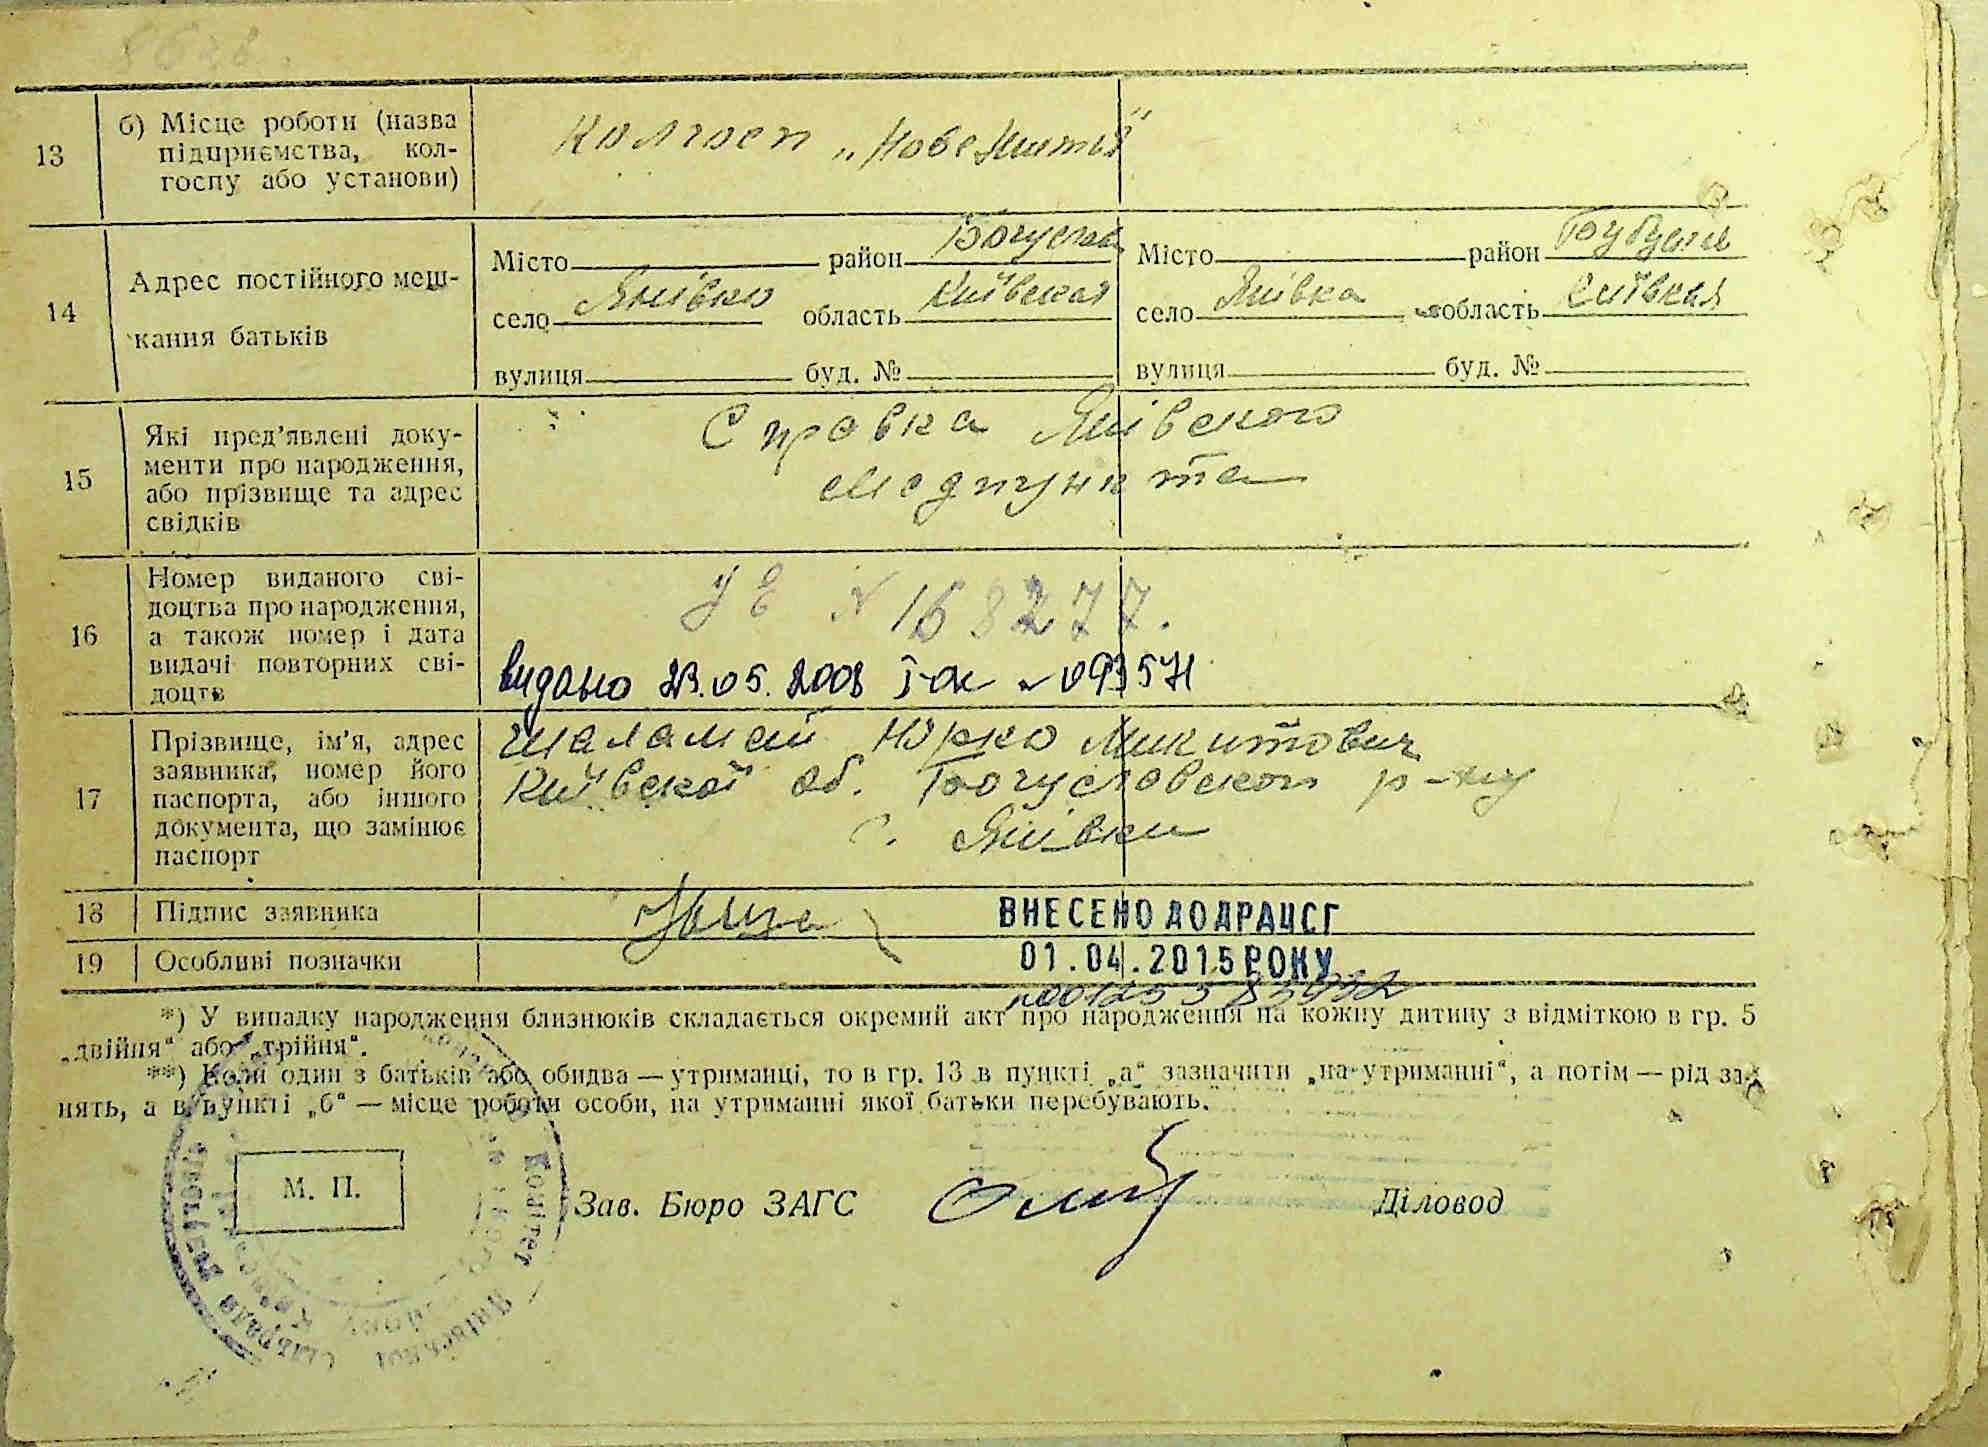 13 б) Місце роботи (назва підприємства, кол-госпу або установи)
Колгосп „Нове життя"
14 Адрес постійного меш-кання батьків
Місто район Богуслав Місто район
село Янівка область Київская село Янівка область Київская
вулиця буд. № вулиця буд. №
15 Які пред'явлені доку-
менти про народження,
або прізвище та адрес
свідків
Справка Янівского
медпункта
16 Номер виданого сві-
доцтва про народження,
а також номер і дата
видачі повторних сві-
доцтв
УЕ N 168277.
видано 23.05.2008 І-ок
17 Прізвище, ім'я, адрес
заявника, номер його
паспорта, або іншого
документа, що замінює
паспорт
Шаламай Юрко Микитович
Київской об. Богуславского р-ну
с. Янівки
18 Підпис заявника
ВНЕСЕНО ДО ДРАЦСГ
19 Особливі позначки
01.04.2015 РОКУ
*) У випадку народження близнюків складається окремий акт про народження на кожну дитину з відміткою в гр. 5
„двійня" або „трійня".
**) Коли один з батьків або обидва — утриманці, то в гр. 13 в пункті „а" зазначити „на утриманні", а потім — рід за-
нять, а в пункті „б" — місце роботи особи, на утриманні якої батьки перебувають.
М. П.
Зав. Бюро ЗАГС Діловод